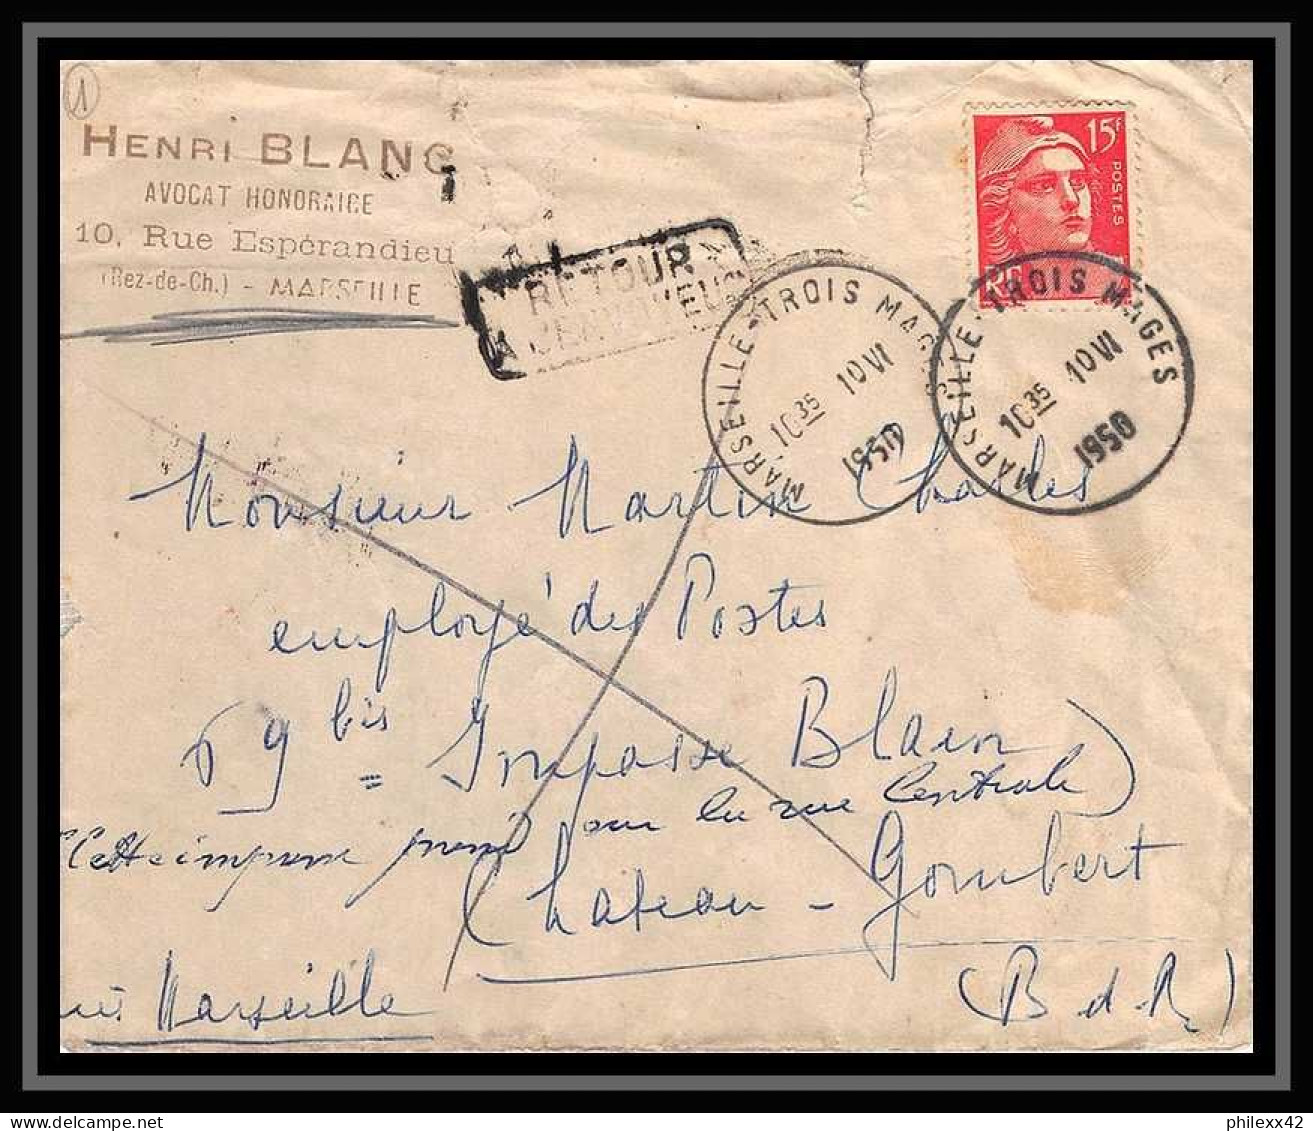 1
HENRI BLANC
AVOCAT HONORAIRE
10, Rue Espérandieu
(Rez-de-Ch.) - MARSEILLE
RETOUR
A L'ENVOYEUR
15F
POSTES
RF
MARSEILLE-TROIS MAGES
10 35 10 VI
1950
MARSEILLE-TROIS MAGES
10 35 10 VI
1950
Monsieur Martin Charles
employé des Postes
9 bis Impasse Blain
(cette impasse prend sur la rue Centrale)
Chateau-Gombert
Marseille
(B d. R)
philexx42